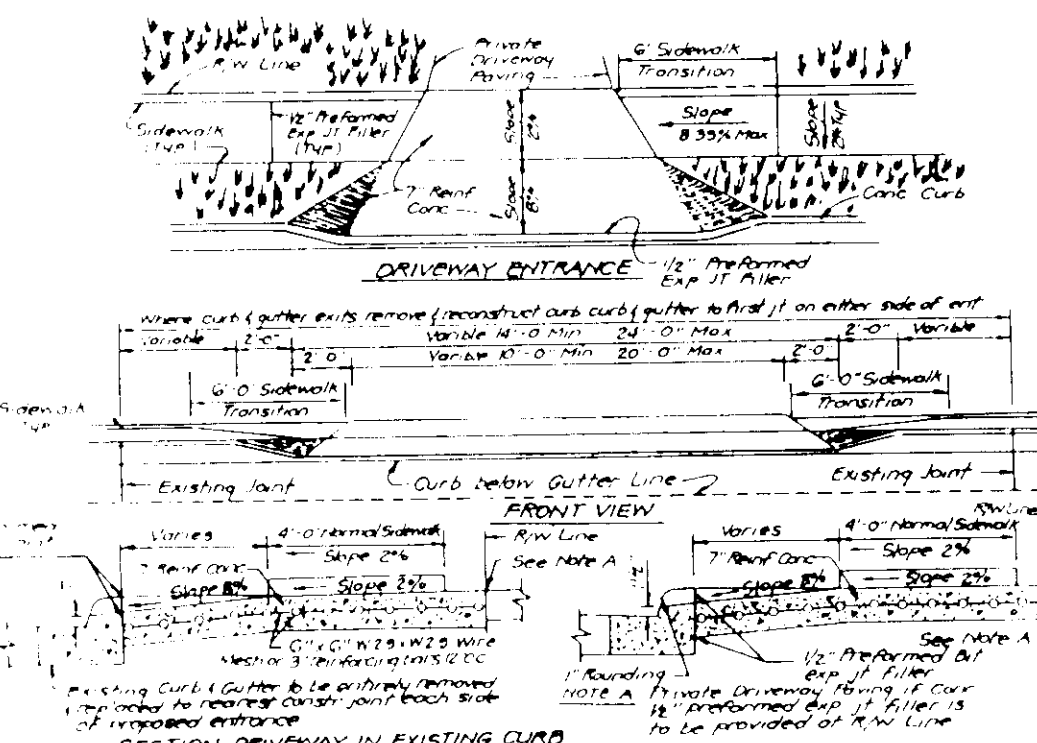 R/W Line
Private
Driveway
Paving
6' Sidewalk
Transition
Sidewalk
(Typ)
1/2" Preformed
Exp JT Filler
(Typ)
Slope
2%
Slope
8.33% Max
Slope
2% Typ
7" Reinf
Conc
Slope
8%
Conc Curb
DRIVEWAY ENTRANCE
1/2" Preformed
Exp JT Filler
Where curb & gutter exits remove & reconstruct curb curb & gutter to first jt on either side of ent
Variable
2'-0"
Varible 14'-0 Min 24'-0" Max
2'-0"
Varible
2'-0"
Varible 10'-0" Min 20'-0" Max
2'-0"
6'-0" Sidewalk
Transition
6'-0" Sidewalk
Transition
Sidewalk
Typ
Existing Joint
Curb below Gutter Line
Existing Joint
FRONT VIEW
R/W Line
Varies
4'-0" Normal Sidewalk
R/W Line
Slope 2%
See Note A
7" Reinf Conc
Slope 8%
Slope 2%
6" x 6" W2.9 x W2.9 Wire
Mesh or 3 reinforcing bars 12 CC
Existing Curb & Gutter to be entirely removed
& replaced to nearest constr joint each side
of proposed entrance
SECTION DRIVEWAY IN EXISTING CURB
Varies
4'-0" Normal Sidewalk
7" Reinf Conc
Slope 2%
Slope 8%
Slope 2%
1 1/2"
See Note A
1/2" Preformed Bit
exp jt filler
1" Rounding
NOTE A Private Driveway Paving if Conc
1/2" preformed exp jt filler is
to be provided at R/W Line